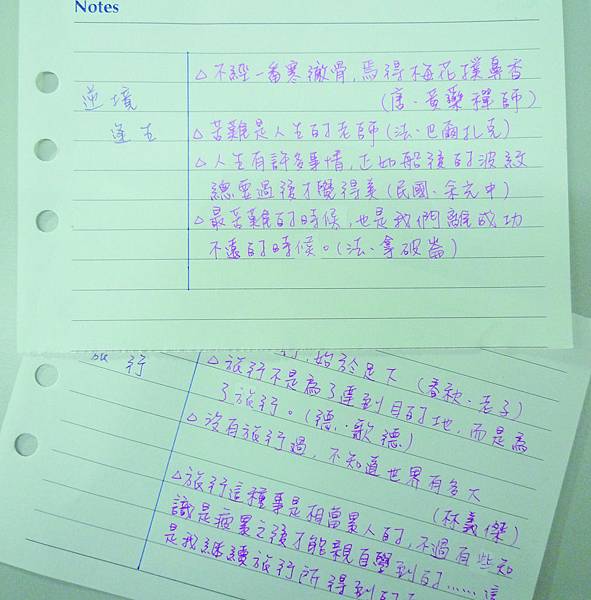 Notes
逆境
逢生
△不經一番寒徹骨,焉得梅花撲鼻香
(唐.黃蘗禪師)
△苦難是人生的老師(法.巴爾扎克)
△人生有許多事情,正如船後的波紋
總要過後才覺得美(民國.余光中)
△最苦難的時候,也是我們離成功
不遠的時候。(法.拿破崙)
旅行
始於足下(春秋.老子)
△旅行不是為了達到目的地,而是為
了旅行。(德.歌德)
△沒有旅行過,不知道世界有多大
(林義傑)
△旅行這種事是相當累人的,不過有些知
識是疲累之後才能親自學到的……這
是我繼續旅行所得到的